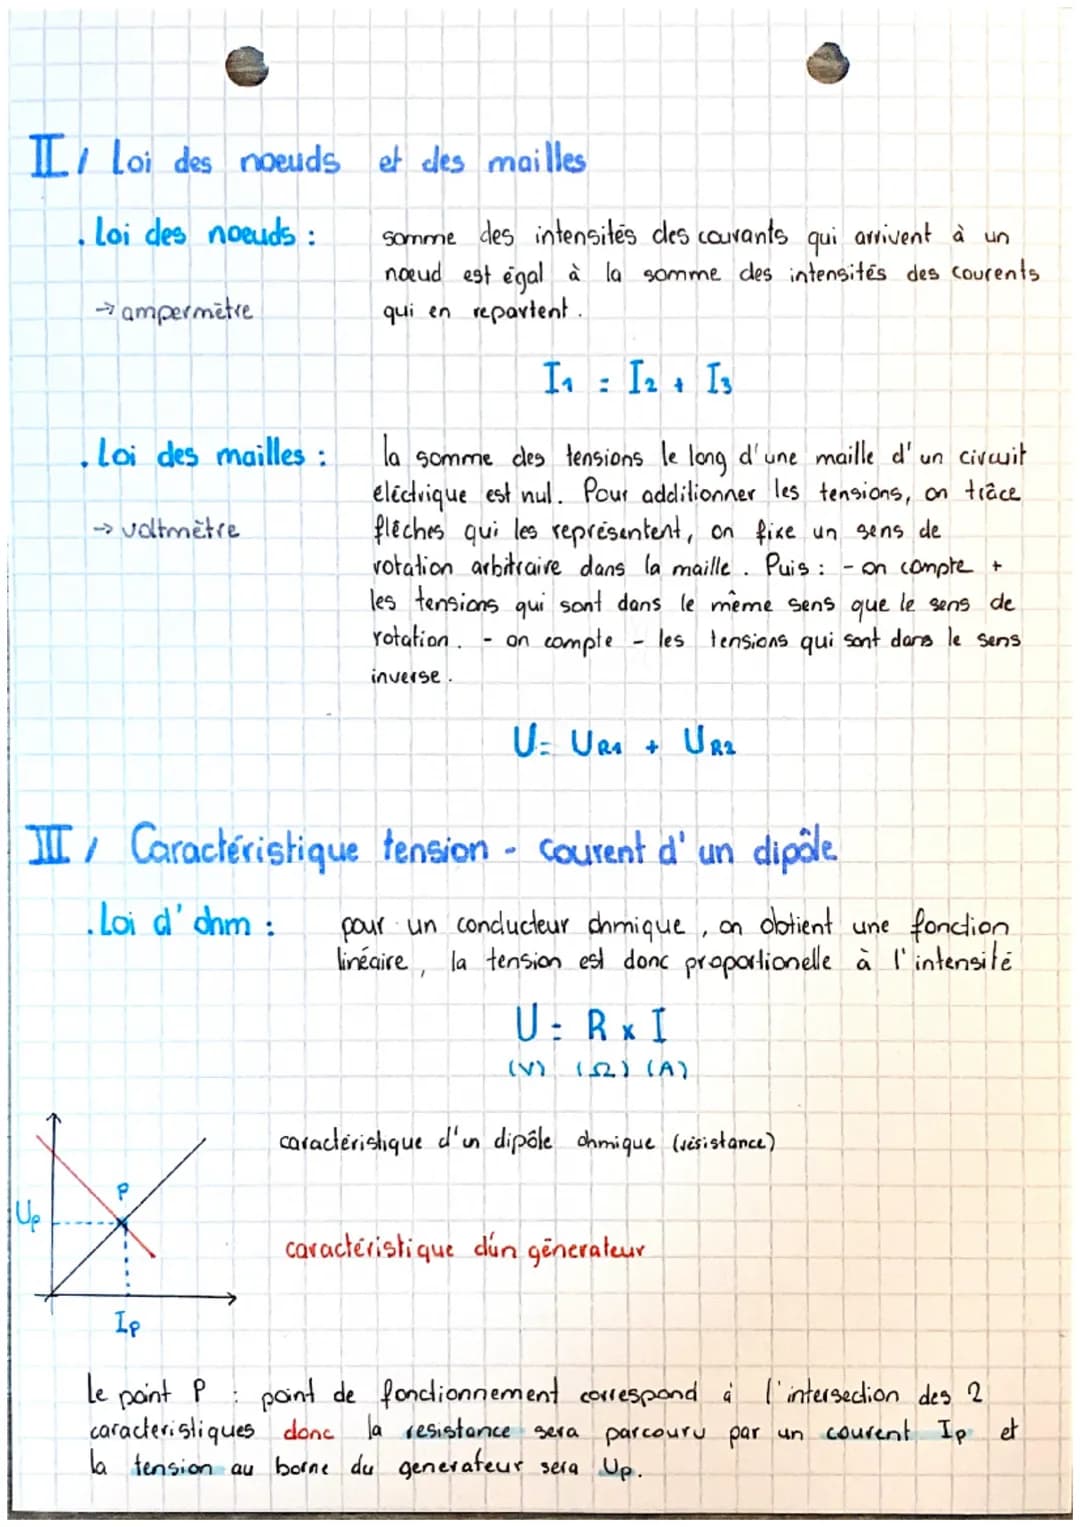 II / Loi des noeuds et des mailles
. Loi des noeuds : somme des intensités des courants qui arrivent à un
nœud est égal à la somme des intensités des courents
→ ampermètre qui en repartent .
I1 = I2 + I3
. Loi des mailles : la somme des tensions le long d'une maille d'un circuit
éléctrique est nul. Pour additionner les tensions, on trâce
→ voltmètre flêches qui les représentent, on fixe un sens de
rotation arbitraire dans la maille . Puis : - on compte +
les tensions qui sont dans le même sens que le sens de
rotation . - on compte - les tensions qui sont dans le sens
inverse .
U = UR1 + UR2
III / Caractéristique tension - courent d'un dipôle
. Loi d'ohm : pour un conducteur ohmique , on obtient une fonction
linéaire , la tension est donc proportionelle à l'intensité
U = R x I
(V) (Ω) (A)
caractéristique d'un dipôle ohmique (résistance)
P
Up
caractéristique d'un génerateur
Ip
Le point P : point de fonctionnement correspond à l'intersection des 2
caracteristiques donc la resistance sera parcouru par un courent Ip et
la tension au borne du generateur sera Up.